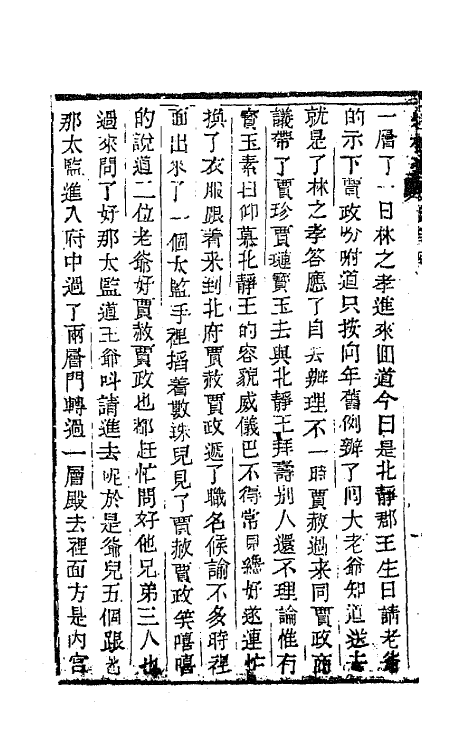 一層了一日林之孝進來回道今日是北靜郡王生日請老爺
的示下賈政吩咐道只按向年舊例辦了回大老爺知道送去
就是了林之孝答應了自去辦理不一時賈赦過来同賈政商
議帶了賈珍賈璉寶玉去與北靜王拜壽別人還不理論惟有
寳玉素日仰慕北靜王的容貌威儀巴不得常見纔好遂連忙
换了衣服跟着来到北府賈赦賈政遞了職名候諭不多時裡
面出來了一個太監手裡掐着數珠兒見了賈赦賈政笑嘻嘻
的說道二位老爺好賈赦賈政也都赶忙問好他兄弟三人也
過來問了好那太監道王爺叫請進去呢於是爺兒五個跟着
那太監進入府中過了兩層門轉過一層殿去裡面方是内宫